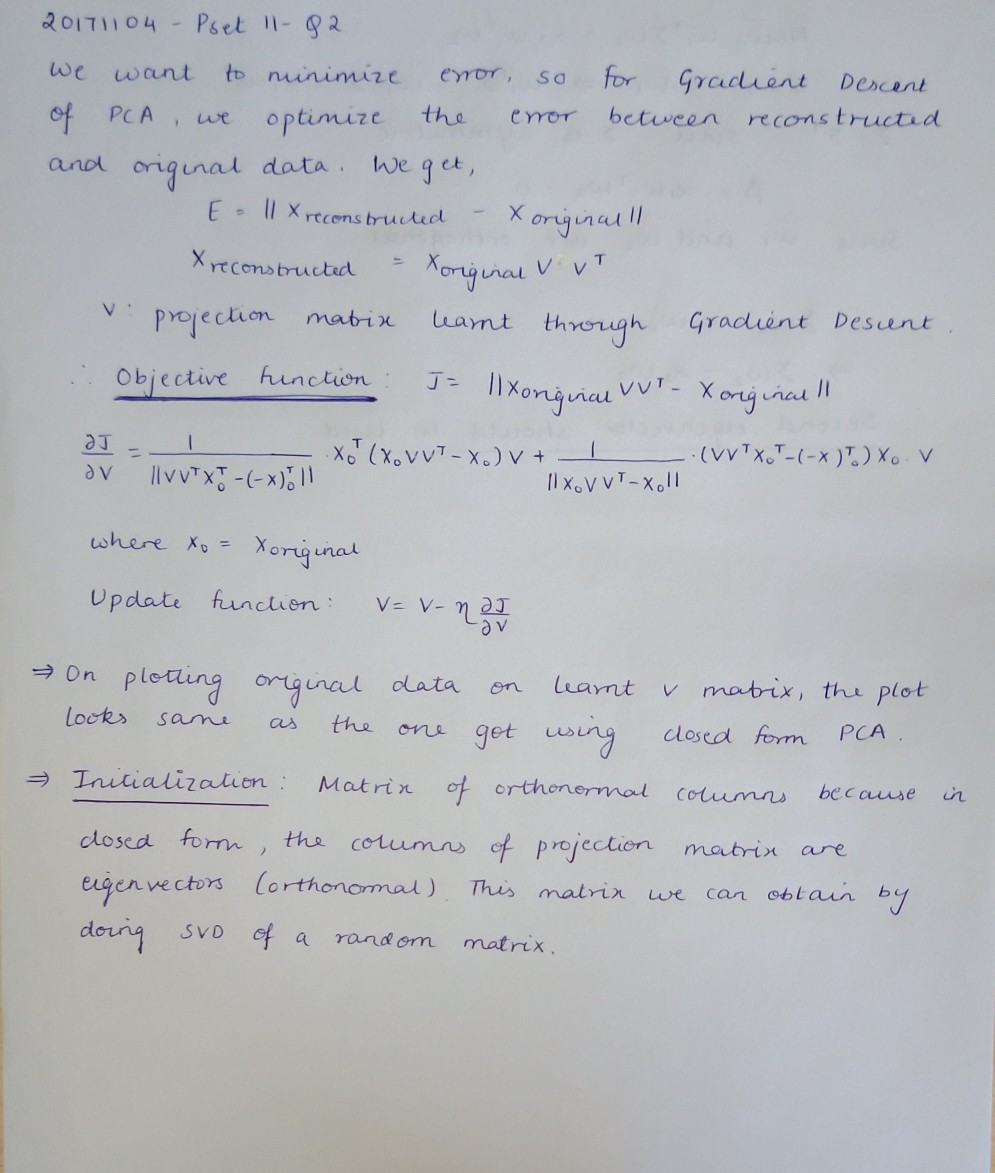 20171104 - Pset 11- Q2
We want to minimize error, so for Gradient Descent
of PCA, we optimize the error between reconstructed
and original data. We get,
E = || X reconstructed - X original ||
X reconstructed = X original V V^T
V: projection matrix learnt through Gradient Descent.
∴ Objective function: J= ||X original VV^T - X original ||
∂J/∂V = 1/||VV^T X_0^T -(-X)_0^T|| · X_0^T (X_0 VV^T - X_0) V + 1/||X_0 V V^T - X_0|| · (VV^T X_0^T -(-X)_0^T) X_0 · V
where X_0 = X original
Update function: V= V- η ∂J/∂V
⇒ On plotting original data on learnt V matrix, the plot
looks same as the one got using closed form PCA.
⇒ Initialization: Matrix of orthonormal columns because in
closed form, the columns of projection matrix are
eigenvectors (orthonormal). This matrix we can obtain by
doing SVD of a random matrix.